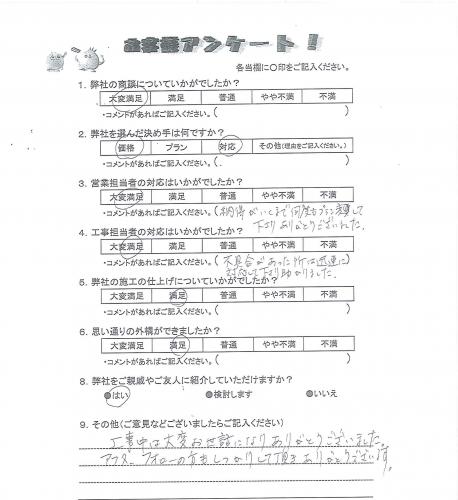 お客様アンケート!
各当欄に○印をご記入ください。
1. 弊社の商談についていかがでしたか?
大変満足 満足 普通 やや不満 不満
・コメントがあればご記入ください。( )
2. 弊社を選んだ決め手は何ですか?
価格 プラン 対応 その他(理由をご記入ください。)
・コメントがあればご記入ください。( )
3. 営業担当者の対応はいかがでしたか?
大変満足 満足 普通 やや不満 不満
・コメントがあればご記入ください。(納得がいくまで何度もプラン変更して
下さりありがとうございました。
4. 工事担当者の対応はいかがでしたか?
大変満足 満足 普通 やや不満 不満
・コメントがあればご記入ください。(不具合があった所は迅速に)
対応して下さり助かりました。
5. 弊社の施工の仕上げについていかがでしたか?
大変満足 満足 普通 やや不満 不満
・コメントがあればご記入ください。( )
6. 思い通りの外構ができましたか?
大変満足 満足 普通 やや不満 不満
・コメントがあればご記入ください。( )
8. 弊社をご親戚やご友人に紹介していただけますか?
●はい ●検討します ●いいえ
9. その他(ご意見などございましたらご記入ください)
工事中は大変お世話になりありがとうございました。
アフターフォローの方もしっかりして頂きありがとうございます。